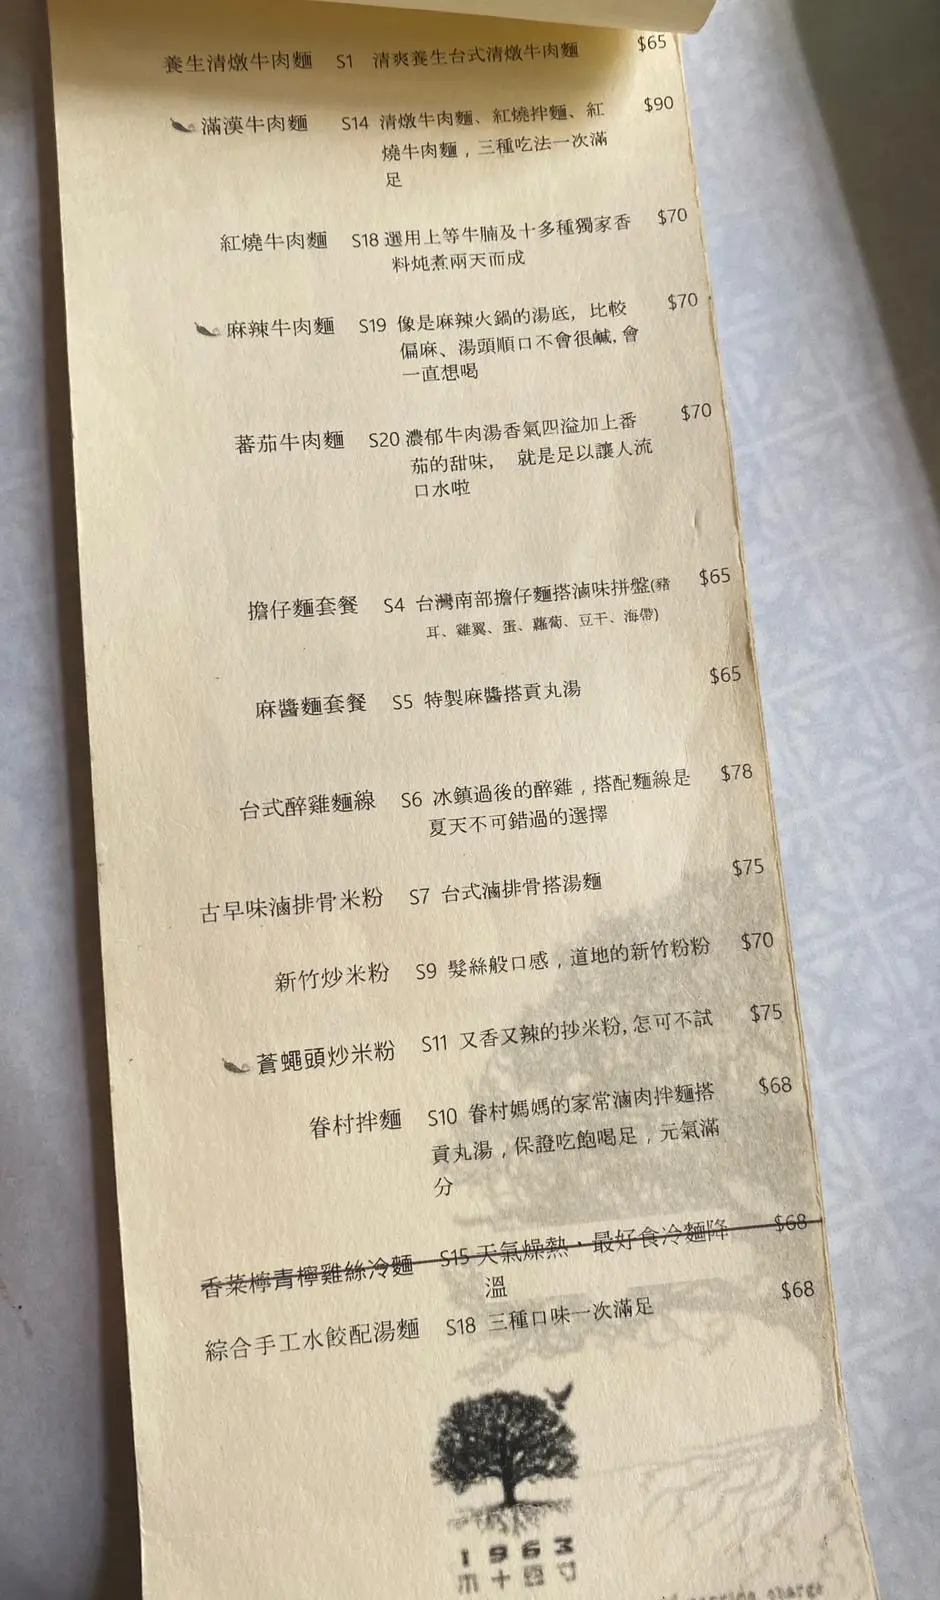 養生清燉牛肉麵 S1 清爽養生台式清燉牛肉麵 $65
滿漢牛肉麵 S14 清燉牛肉麵、紅燒拌麵、紅 $90
燒牛肉麵，三種吃法一次滿
足
紅燒牛肉麵 S18 選用上等牛腩及十多種獨家香 $70
料炖煮兩天而成
麻辣牛肉麵 S19 像是麻辣火鍋的湯底, 比較 $70
偏麻、湯頭順口不會很鹹, 會
一直想喝
蕃茄牛肉麵 S20 濃郁牛肉湯香氣四溢加上番 $70
茄的甜味, 就是足以讓人流
口水啦
擔仔麵套餐 S4 台灣南部擔仔麵搭滷味拼盤(豬 $65
耳、雞翼、蛋、蘿蔔、豆干、海帶)
麻醬麵套餐 S5 特製麻醬搭貢丸湯 $65
台式醉雞麵線 S6 冰鎮過後的醉雞，搭配麵線是 $78
夏天不可錯過的選擇
古早味滷排骨米粉 S7 台式滷排骨搭湯麵 $75
新竹炒米粉 S9 髮絲般口感，道地的新竹粉粉 $70
蒼蠅頭炒米粉 S11 又香又辣的抄米粉, 怎可不試 $75
眷村拌麵 S10 眷村媽媽的家常滷肉拌麵搭 $68
貢丸湯，保證吃飽喝足，元氣滿
分
香菜檸青檸雞絲冷麵 S15 天氣燥熱，最好食冷麵降 $68
溫
綜合手工水餃配湯麵 S18 三種口味一次滿足 $68
1963